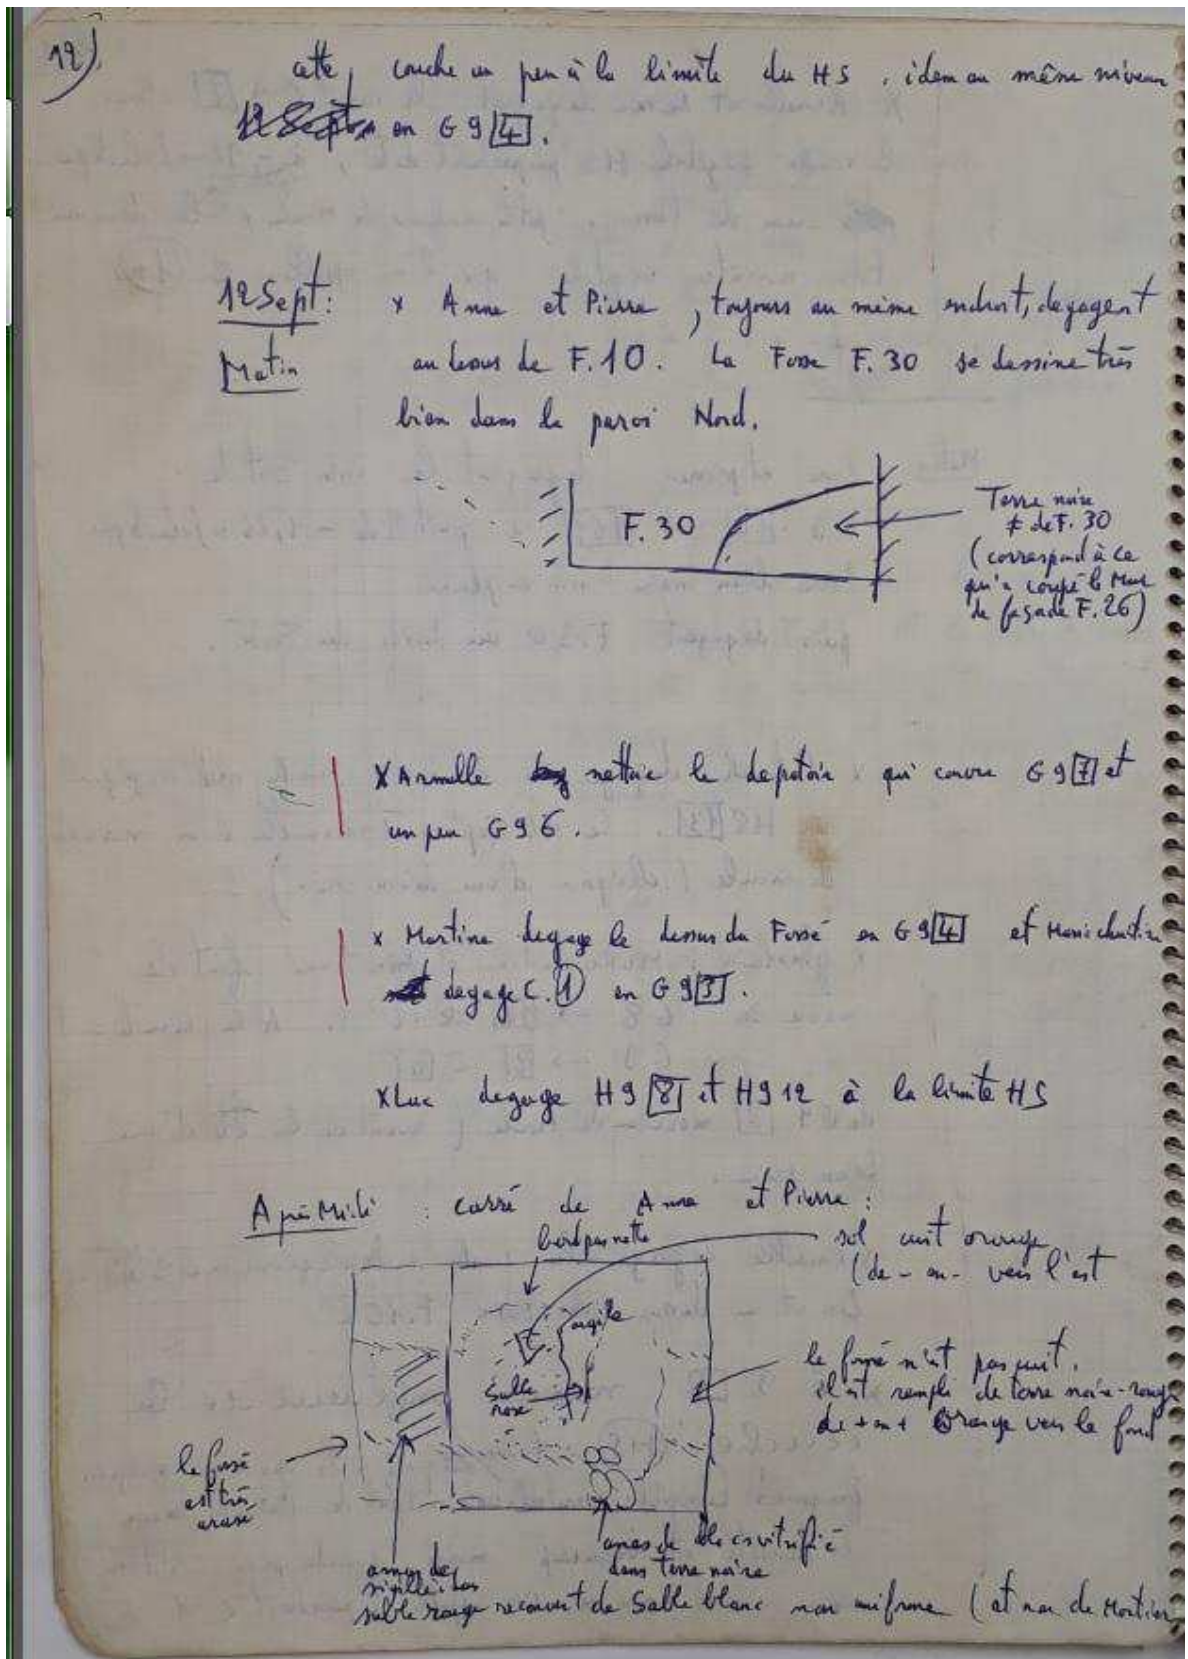 12)
cette couche un peu à la limite du HS. idem au même niveau
en G9 4.
12 Sept:
Matin
x Anne et Pierre, toujours au même endroit, degagent
au dessus de F.10. La Fosse F.30 se dessine très
bien dans la paroi Nord.
F.30
Terre noire
≠ de F.30
(correspond à ce
qu'a coupé le Mur
de façade F.26)
x Armelle nettoie le depotoir qui couvre G9 7 et
un peu G9 6.
x Martine degage le dessus du Fossé en G9 4 et Marie christine
degage C.1 en G9 3.
x Luc degage H9 8 et H9 12 à la limite HS
Après Midi : carré de Anne et Pierre :
bord pas nette
sol cuit orange
(de - en - vers l'est
argile
Sable
rose
le fossé n'est pas cuit.
il est rempli de terre noire-rouge
de + en + Orange vers le fond
le fossé
est très
arasé
amas de
sable rouge recouvert de Sable blanc non uniforme (et non de Mortier
amas de vitrifié
dans terre noire